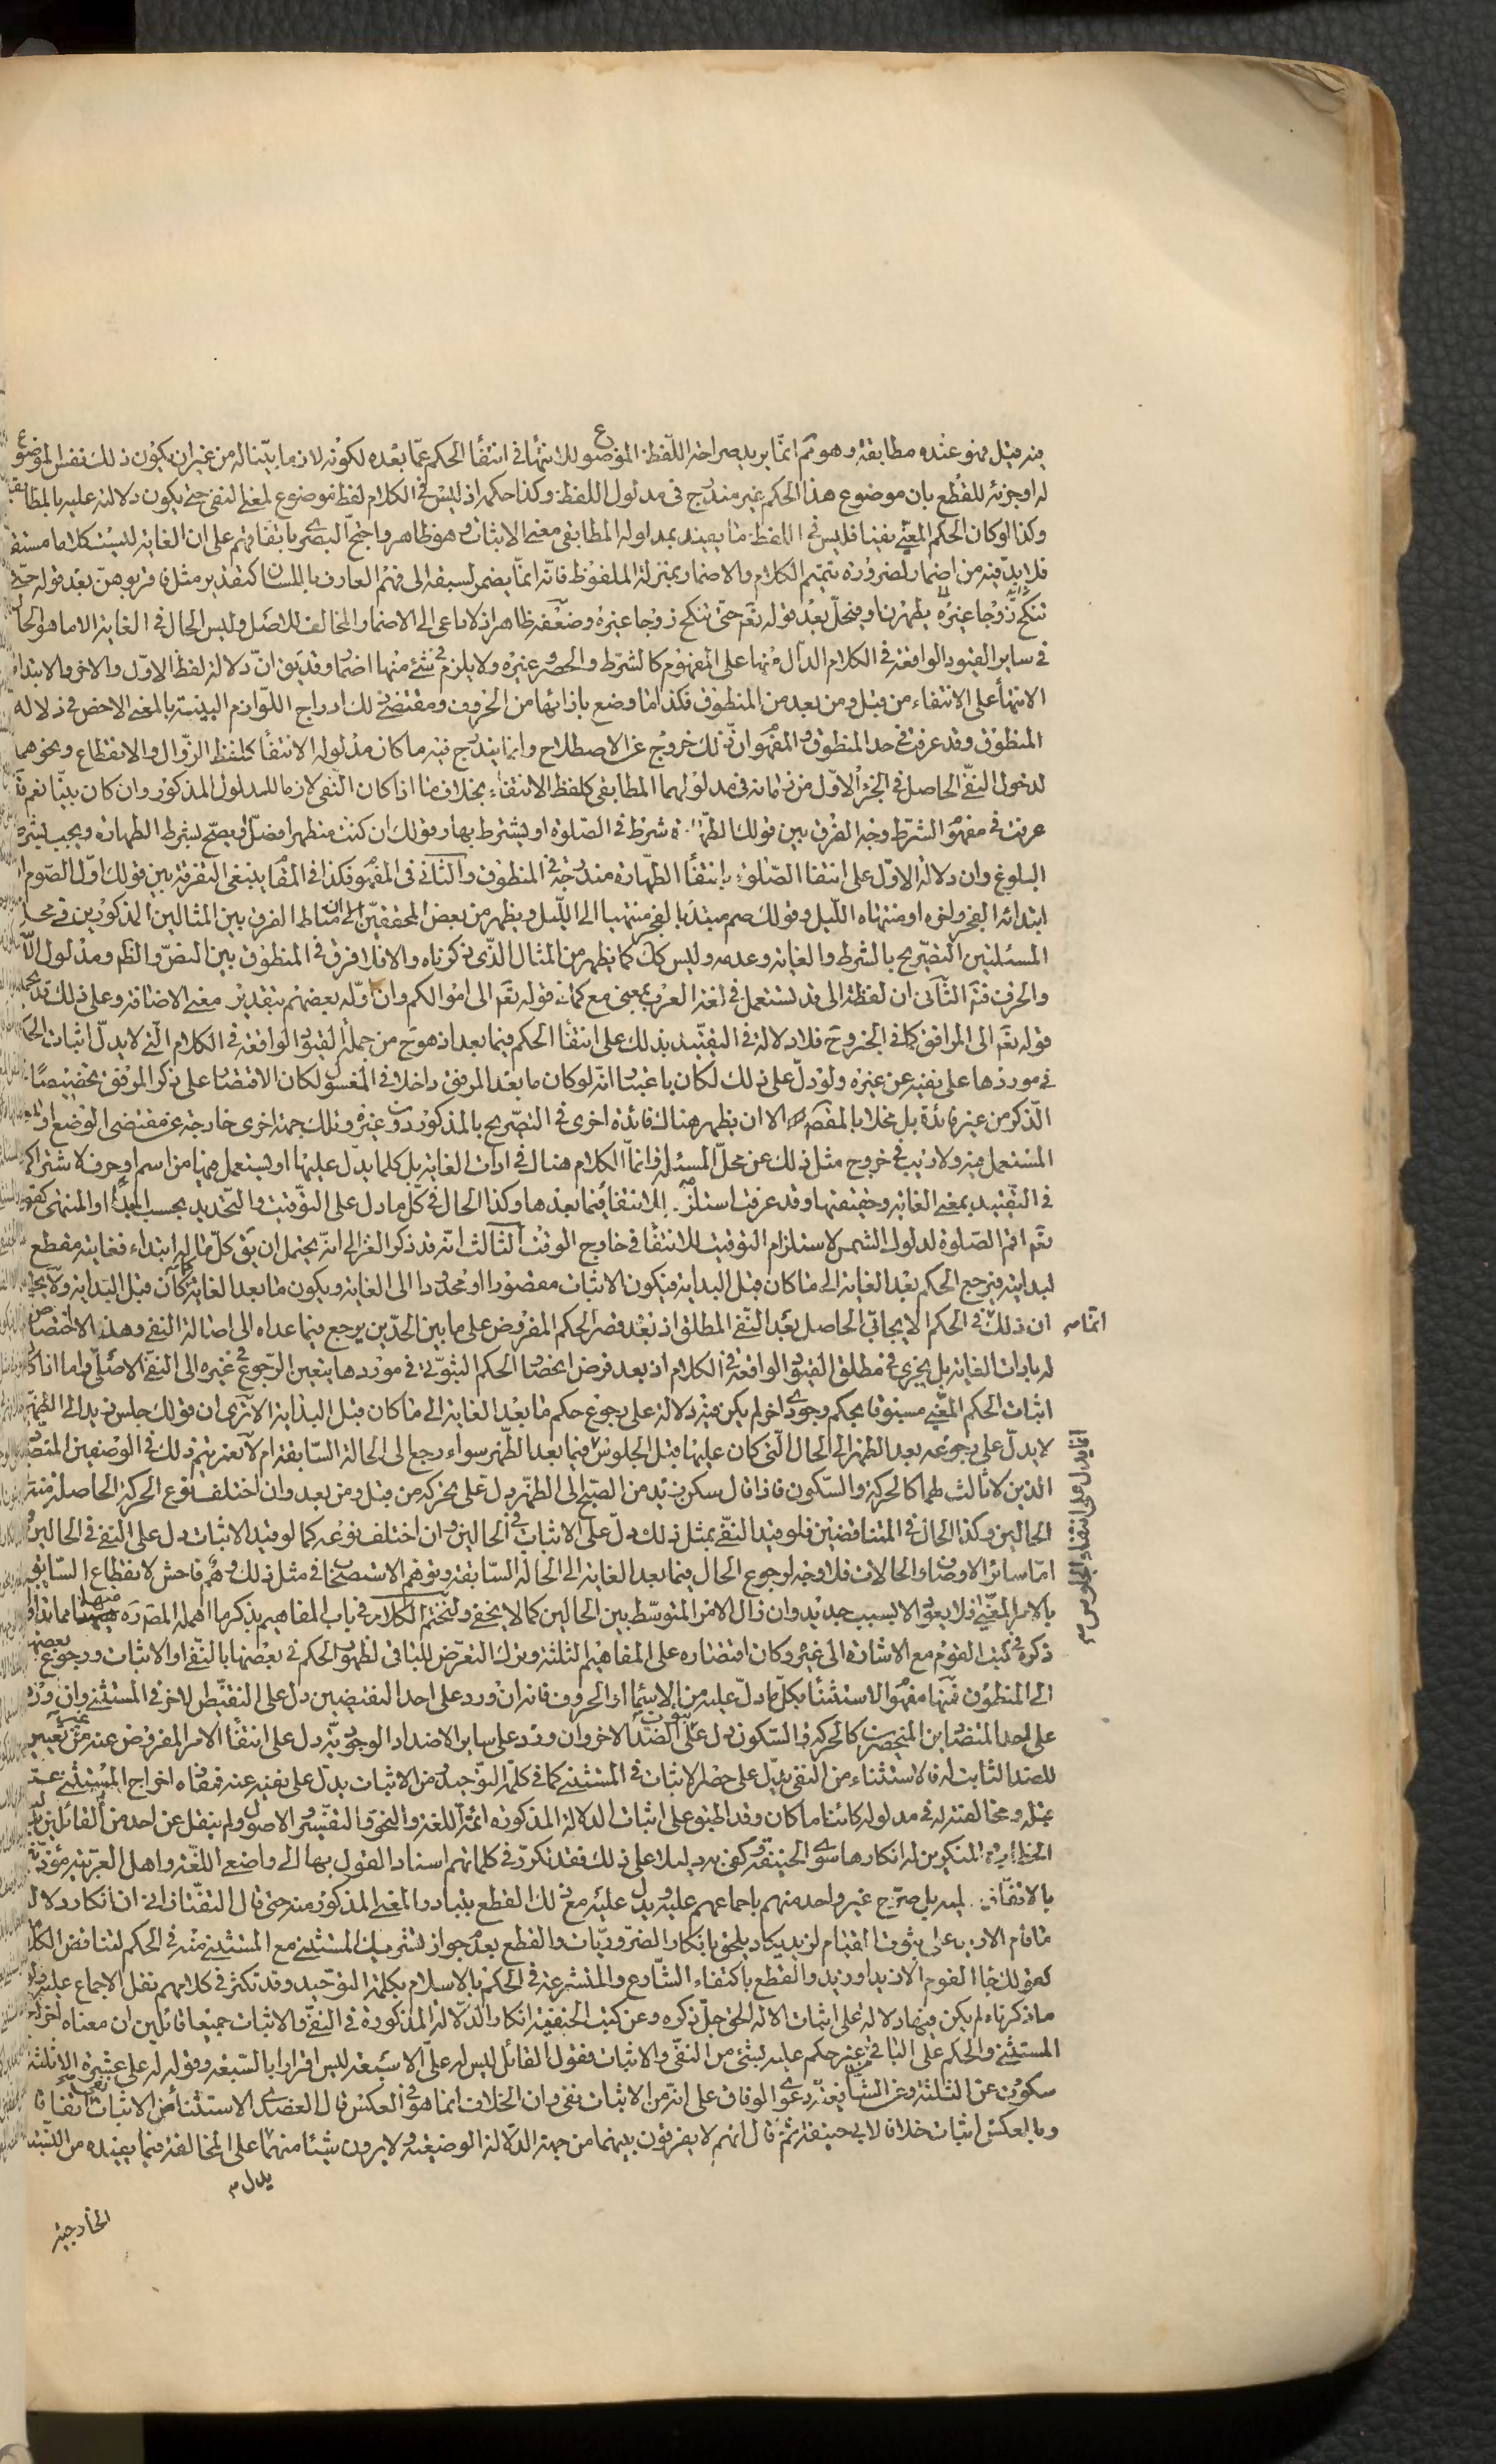 فيه قيل فهو عنده مطابقة وهو ثم انما يريد صراحة اللفظ الموضوع للانتهاء في انتفاء الحكم عمّا بعده لكونه لازما بيّنا له من غير ان يكون ذلك نفس الموضوع
له او جزئه للقطع بان موضوع هذا الحكم غير مندرج في مدلول اللفظ وكذا حكمه اذ ليس في الكلام لفظ موضوع لمعنى النفي حتى يكون دلالته عليه بالمطابقة
وكذا لو كان الحكم المغيّى نفيا فليس في اللفظ ما يفيد بمدلوله المطابقي معنى الاثبات وهو ظاهر واحتج البصري باتفاقهم على ان الغاية ليست كلاما مستقلا
فلا بدّ فيه من اضمار لضرورة تتميم الكلام والاضمار بمنزلة الملفوظ فانّه انما يضمر لسبقه الى فهم العارف باللسان كتقدير مثل فاقربوهنّ بعد قوله حتّى
تنكح زوجا غيره بطهرن او فتحلّ بعد قوله تعم حتى تنكح زوجا غيره وضعفه ظاهر اذ لا داعى الى الاضمار المخالف للاصل وليس الحال في الغاية الا ما هو الحال
في ساير القيود الواقعة في الكلام الدال منها على المفهوم كالشرط والحصر وغيره ولا يلزم في شئ منها اضمار وقد يق انّ دلالة لفظ الاوّل والاخر والابتداء
الانتهاء على الانتفاء من قبل ومن بعد من المنطوق فكذا ما وضع بازائها من الحروف ومقتضى ذلك ادراج اللوازم البينة بالمعنى الاخص في دلالة
المنطوق وقد عرفت في حد المنطوق والمفهوم ان ذلك خروج عن الاصطلاح وانما يندرج فيه ما كان مدلوله الانتفاء كلفظ الزوال والانقطاع ونحوهما
لدخول النفي الحاصل في الجزء الاوّل من زمانه في مدلولهما المطابقي كلفظ الانتفاء بخلاف ما اذا كان النفي لازما للمدلول المذكور وان كان بيّنا نعم قد
عرفت في مفهوم الشرط وجه الفرق بين قولك الطهارة شرط في الصلوة او يشترط بها وقولك ان كنت متطهرا فصلّ او يصحّ بشرط الطهارة ويجب بشرط
البلوغ وان دلالة الاوّل على انتفاء الصلوة بانتفاء الطهارة مندرجة في المنطوق والثاني في المفهوم فكذا في المقام ينبغي التفرقة بين قولك اوّل الصوم او
ابتدائه الفجر واخره او منتهاه الليل وقولك صم مبتدئا بالفجر منتهيا الى الليل ويظهر من بعض المحققين ان مناط الفرق بين المثالين المذكورين في محلّ
المسئلتين التصريح بالشرط والغاية وعدمه وليس كك كما يظهر من المثال الذي ذكرناه والا فلا فرق في المنطوق بين النصّ والظاهر ومدلول
والحرف فتم الثاني ان لفظة الى قد تستعمل في لغة العرب بمعنى مع كما في قوله تعم الى اموالكم وان اوّله بعضهم بتقدير معنى الاضافة وعلى ذلك قد
قوله تعم الى المرافق كما في الخبر وح فلا دلالة في التقييد بذلك على انتفاء الحكم فيما بعد اذ هو ح من جملة القيود الواقعة في الكلام التي لا يدلّ اثبات الحكم
في موردها على نفيه عن غيره ولو دلّ على ذلك لكان باعتبار انّه لو كان ما بعد المرفق داخلا في المغسول لكان الاقتصار على ذكر المرفق تخصيصا
الذكر من غير فائدة بل مخلا بالمقصود الا ان يظهر هناك فائدة اخرى في التصريح بالمذكور دون غيره وتلك جهة اخرى خارجة عن مقتضى الوضع او
المستعمل فيه ولا ريب في خروج مثل ذلك عن محلّ المسئلة وانما الكلام هنا في ادات الغاية بل كلما يدلّ عليها او يستعمل فيها من اسم او حرف لاشتراكها
في التقييد بمعنى الغاية وحقيقتها وقد عرفت استلزامه الانتفاء فيما بعدها وكذا الحال في كلّ ما دل على التوقيت والتحديد بحسب المبدأ او المنتهى كقوله
تعم اقم الصلوة لدلوك الشمس لاستلزام التوقيت للانتفاء في خارج الوقت الثالث انّه قد ذكر الغزالي انّه يحتمل ان يق كلّ ما له ابتداء فغايته مقطع
لبدايته فيرجع الحكم بعد الغاية الى ما كان قبل البداية فيكون الاثبات مقصورا او محدودا الى الغاية ويكون ما بعد الغاية كما كان قبل البداية ولا يخفى
ان ذلك انما يتم في الحكم الايجابي الحاصل بعد النفي المطلق اذ بعد قصر الحكم المفروض على ما بين الحدّين يرجع فيما عداه الى اصالة النفي وهذا لا اختصاص
له بادات الغاية بل يجرى في مطلق القيود الواقعة في الكلام اذ بعد فرض اختصاص الحكم الثبوتي في موردها يتعين الرجوع في غيره الى النفي الاصلي واما اذا كان
اثبات الحكم المغيّى مسبوقا بحكم وجودي اخر لم يكن فيه دلالة على رجوع حكم ما بعد الغاية الى ما كان قبل البداية الا ترى ان قولك جلس زيد الى الظهر
لا يدلّ على رجوعه بعد الظهر الى الحال التي كان عليها قبل الجلوس انما يدل على انتفاء الجلوس فيما بعد الظهر سواء رجع الى الحالة السابقة ام لا نعم يتم ذلك في الوصفين المتضادين
الذين لا ثالث لهما كالحركة والسكون فاذا قال سكن زيد من الصبح الى الظهر دلّ على تحركه من قبل ومن بعد وان اختلف نوع الحركة الحاصلة منه في
الحالين وكذا الحال في المتناقضين فلو قيد النفي بمثل ذلك دلّ على الاثبات في الحالين وان اختلف نوعه كما لو قيد الاثبات دل على النفي في الحالين و
امّا سائر الاوصاف والحالات فلا وجه لرجوع الحال فيما بعد الغاية الى الحالة السابقة وتوهم الاستصحاب في مثل ذلك وهم فاحش لانقطاع السابق
بالامر المغيّى فلا يعود الا بسبب جديد وان زال الامر المتوسّط بين الحالين كما لا يخفى ولنختم الكلام في باب المفاهيم بذكر ما اهمله المصّ ره منها مما
ذكره في كتب القوم مع الاشارة الى غيره وكان اقتصاره على المفاهيم الثلثة وترك التعرّض للباقي لظهور الحكم في بعضها بالنفي او الاثبات ورجوع بعضها
الى المنطوق فمنها مفهوم الاستثناء بكلّ ما دلّ عليه من الاسماء او الحروف فانه ان ورد على احد النقيضين دلّ على النقيض الاخر في المستثنى وان ورد
على احد المتضادين المنحصرين كالحركة والسكون دل على ثبوت الضد الاخر وان ورد على ساير الاضداد الوجوديّة دل على انتفاء الامر المفروض عنه من غير تعيين
للضد الثابت له فالاستثناء من النفي يدلّ على حصر الاثبات في المستثنى كما في كلمة التوحيد ومن الاثبات يدلّ على نفيه عنه فمفاده اخراج المستثنى عمّا
قبله ومخالفته له في مدلوله كائنا ما كان وقد اطبق على اثبات الدلالة المذكورة ائمّة اللغة والنحو والتفسير والاصول ولم ينقل عن احد من القائلين بدليل
الخطاب والمنكرين له انكارها سوى الحنيفة وكفى به دليلا على ذلك فقد تكرّر في كلماتهم اسناد القول بها الى واضعي اللغة واهل العربية مؤذنين
بالاتفاق عليه بل صرّح غير واحد منهم باجماعهم عليه ويدل عليه مع ذلك القطع بتبادر المعنى المذكور منه حتى قال التفتازاني ان انكار دلالة
ما قام الا زيد على ثبوت القيام لزيد يكاد يلحق بانكار الضروريّات والقطع بعدم جواز تشريك المستثنى مع المستثنى منه في الحكم لتناقض الكلام
كقولك جاء القوم الا زيدا وزيد والقطع باكتفاء الشارع والمتشرعة في الحكم بالاسلام بكلمة التوحيد وقد تكثر في كلامهم نقل الاجماع عليه ولو لا
ما ذكرناه لم يكن فيها دلالة على اثبات الاله الحق جلّ ذكره وعن كتب الحنفية انكار الدلالة المذكورة في النفي والاثبات جميعا قائلين ان معناه اخراج
المستثنى والحكم على الباقي من غير حكم عليه بشئ من النفي والاثبات فقول القائل ليس له علىّ الا سبعة ليس اقرارا بالسبعة وقوله له على عشرة الا ثلثة
سكوت عن الثلثة وعن الشافعية دعوى الوفاق على انّه من الاثبات نفي وان الخلاف انما هو في العكس قال العضدي الاستثناء من الاثبات نفي اتفاقا
وبالعكس اثبات خلافا لابي حنيفة ثم قال انهم لا يفرقون بينهما من جهة الدلالة الوضعية ولا يرون شيئا منهما يدل على المخالفة فيما يفيده من النسبة
الخارجية